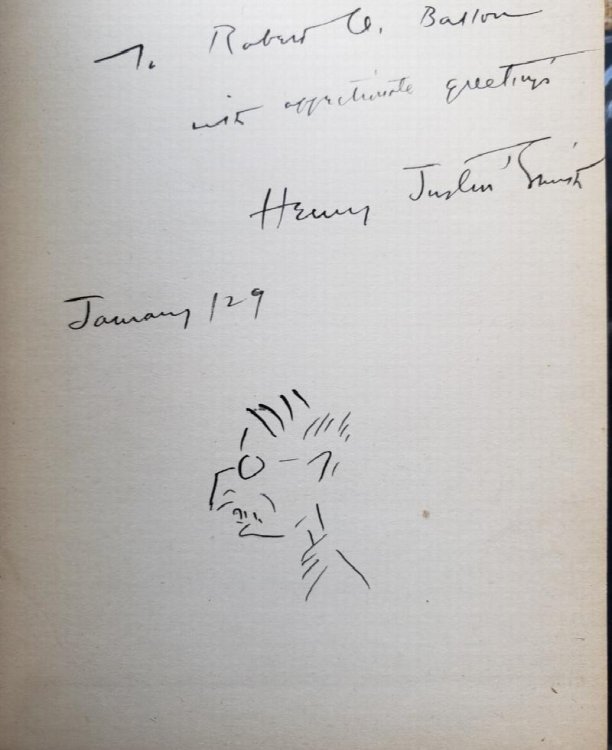 To Robert O. Ballou
with affectionate greetings
Henry Justin Smith
January 129